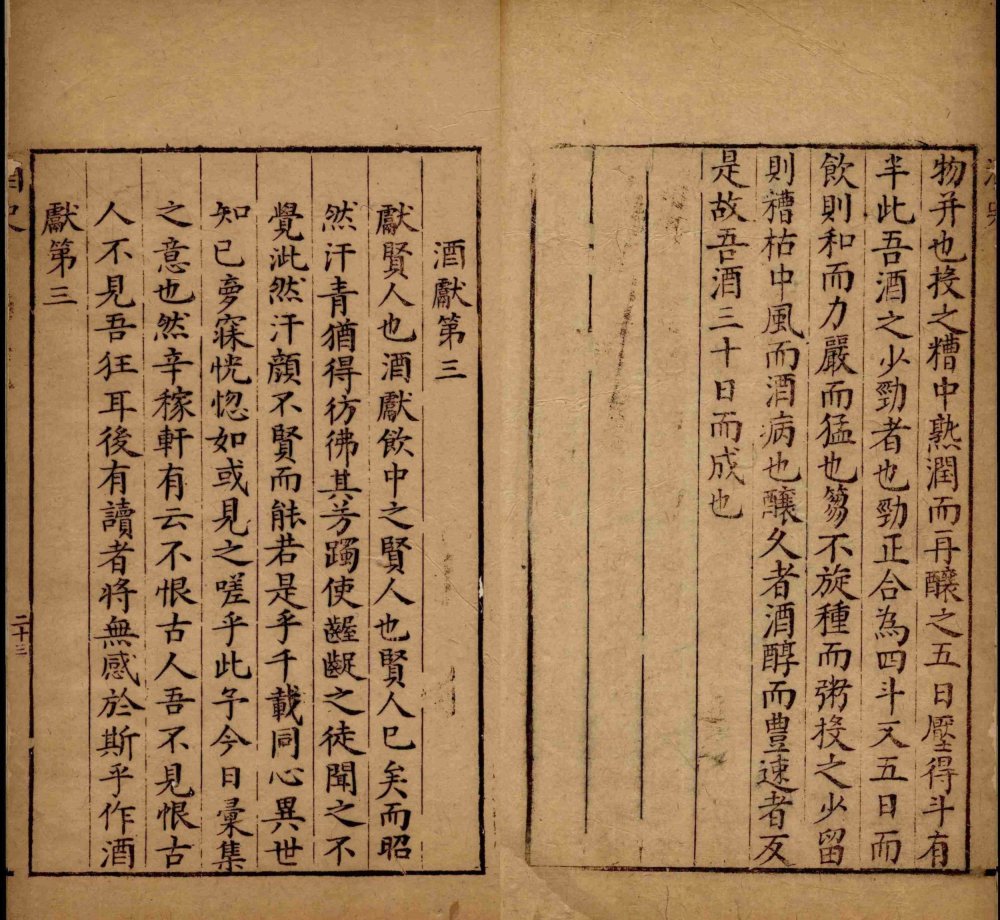 物并也投之糟中熟潤而再釀之五日壓得斗有
半此吾酒之少勁者也勁正合為四斗又五日而
飲則和而力嚴而猛也篘不旋種而粥投之少留
則糟枯中風而酒病也釀久者酒醇而豊速者反
是故吾酒三十日而成也
酒獻第三
獻賢人也酒獻飲中之賢人也賢人已矣而昭
然汗青猶得彷彿其芳躅使齷齪之徒聞之不
覺泚然汗顔不賢而能若是乎千載同心異世
知已夢寐恍惚如或見之嗟乎此予今日彙集
之意也然辛稼軒有云不恨古人吾不見恨古
人不見吾狂耳後有讀者將無感於斯乎作酒
獻第三
二十三